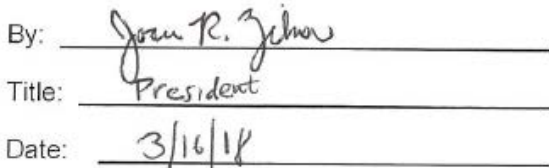 By: Joan R.
Title: President
Date: 3/16/18